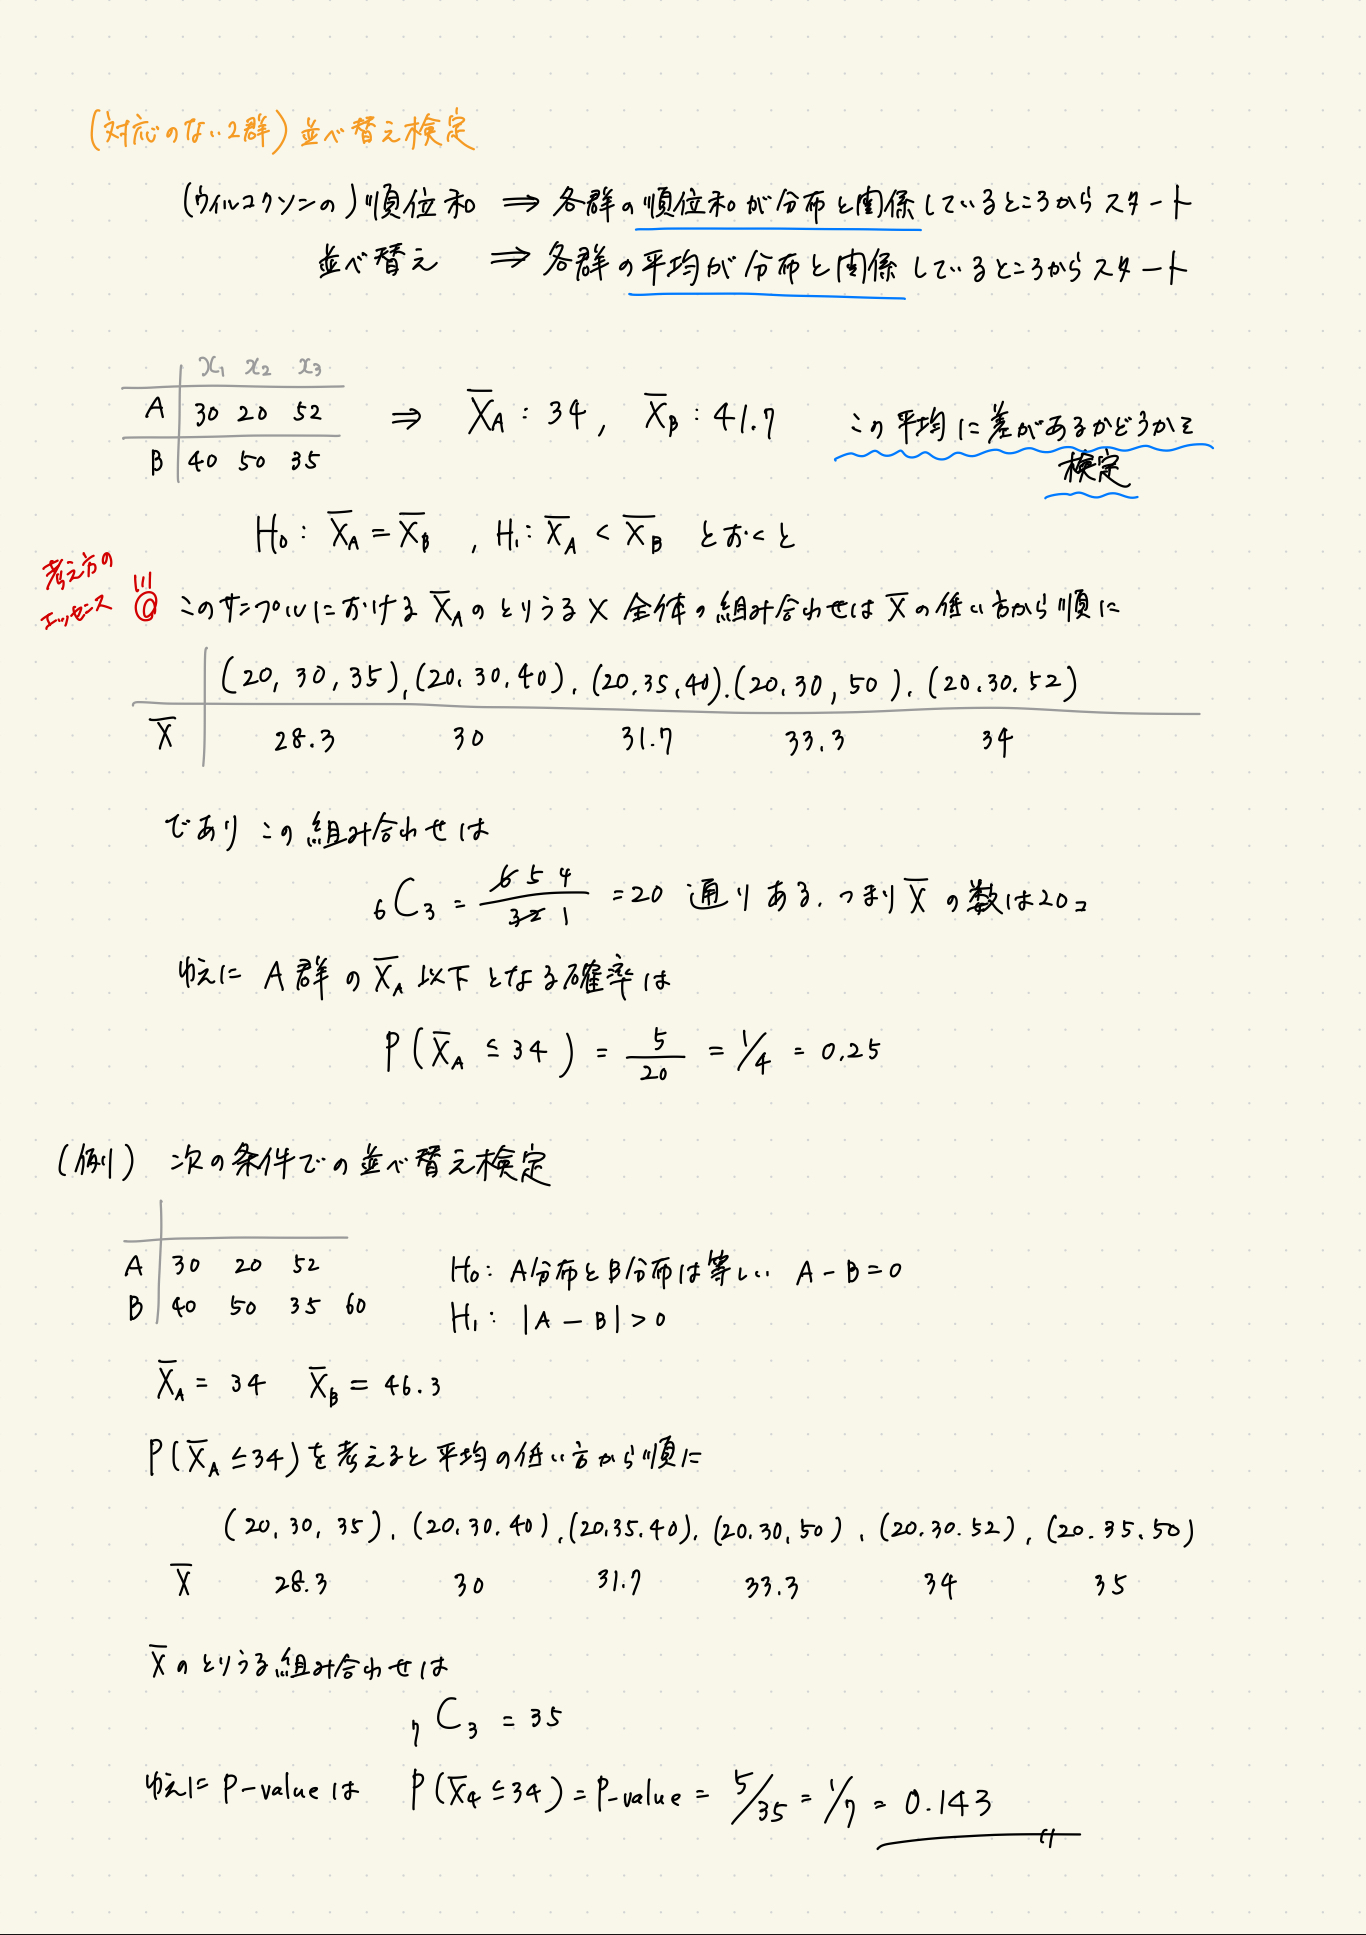 (対応のない2群) 並べ替え検定
(ウィルコクソンの)順位和 ⇒ 各群の順位和が分布と関係しているところからスタート
並べ替え ⇒ 各群の平均が分布と関係しているところからスタート
x₁ x₂ x₃
A 30 20 52
B 40 50 35
⇒ X̄A : 34, X̄B : 41.7 この平均に差があるかどうかを
検定
H₀ : X̄A = X̄B , H₁ : X̄A < X̄B とおくと
考え方の
エッセンス
◎ このサンプルにおけるX̄AのとりうるX 全体の組み合わせはX̄の低い方から順に
(20, 30, 35), (20, 30, 40), (20, 35, 40), (20, 30, 50), (20, 30, 52)
X̄ 28.3 30 31.7 33.3 34
であり この組み合わせは
₆C₃ = 6 5 4 / 3 2 1 = 20 通りある. つまり X̄ の数は20コ
ゆえに A群のX̄A 以下となる確率は
P(X̄A ≤ 34) = 5/20 = 1/4 = 0.25
(例) 次の条件での並べ替え検定
A 30 20 52
B 40 50 35 60
H₀ : A分布とB分布は等しい A - B = 0
H₁ : |A - B| > 0
X̄A = 34 X̄B = 46.3
P(X̄A ≤ 34)を考えると平均の低い方から順に
(20, 30, 35), (20, 30, 40), (20, 35, 40), (20, 30, 50), (20, 30, 52), (20, 35, 50)
X̄ 28.3 30 31.7 33.3 34 35
X̄のとりうる組み合わせは
₇C₃ = 35
ゆえに P-valueは P(X̄A ≤ 34) = P-value = 5/35 = 1/7 = 0.143